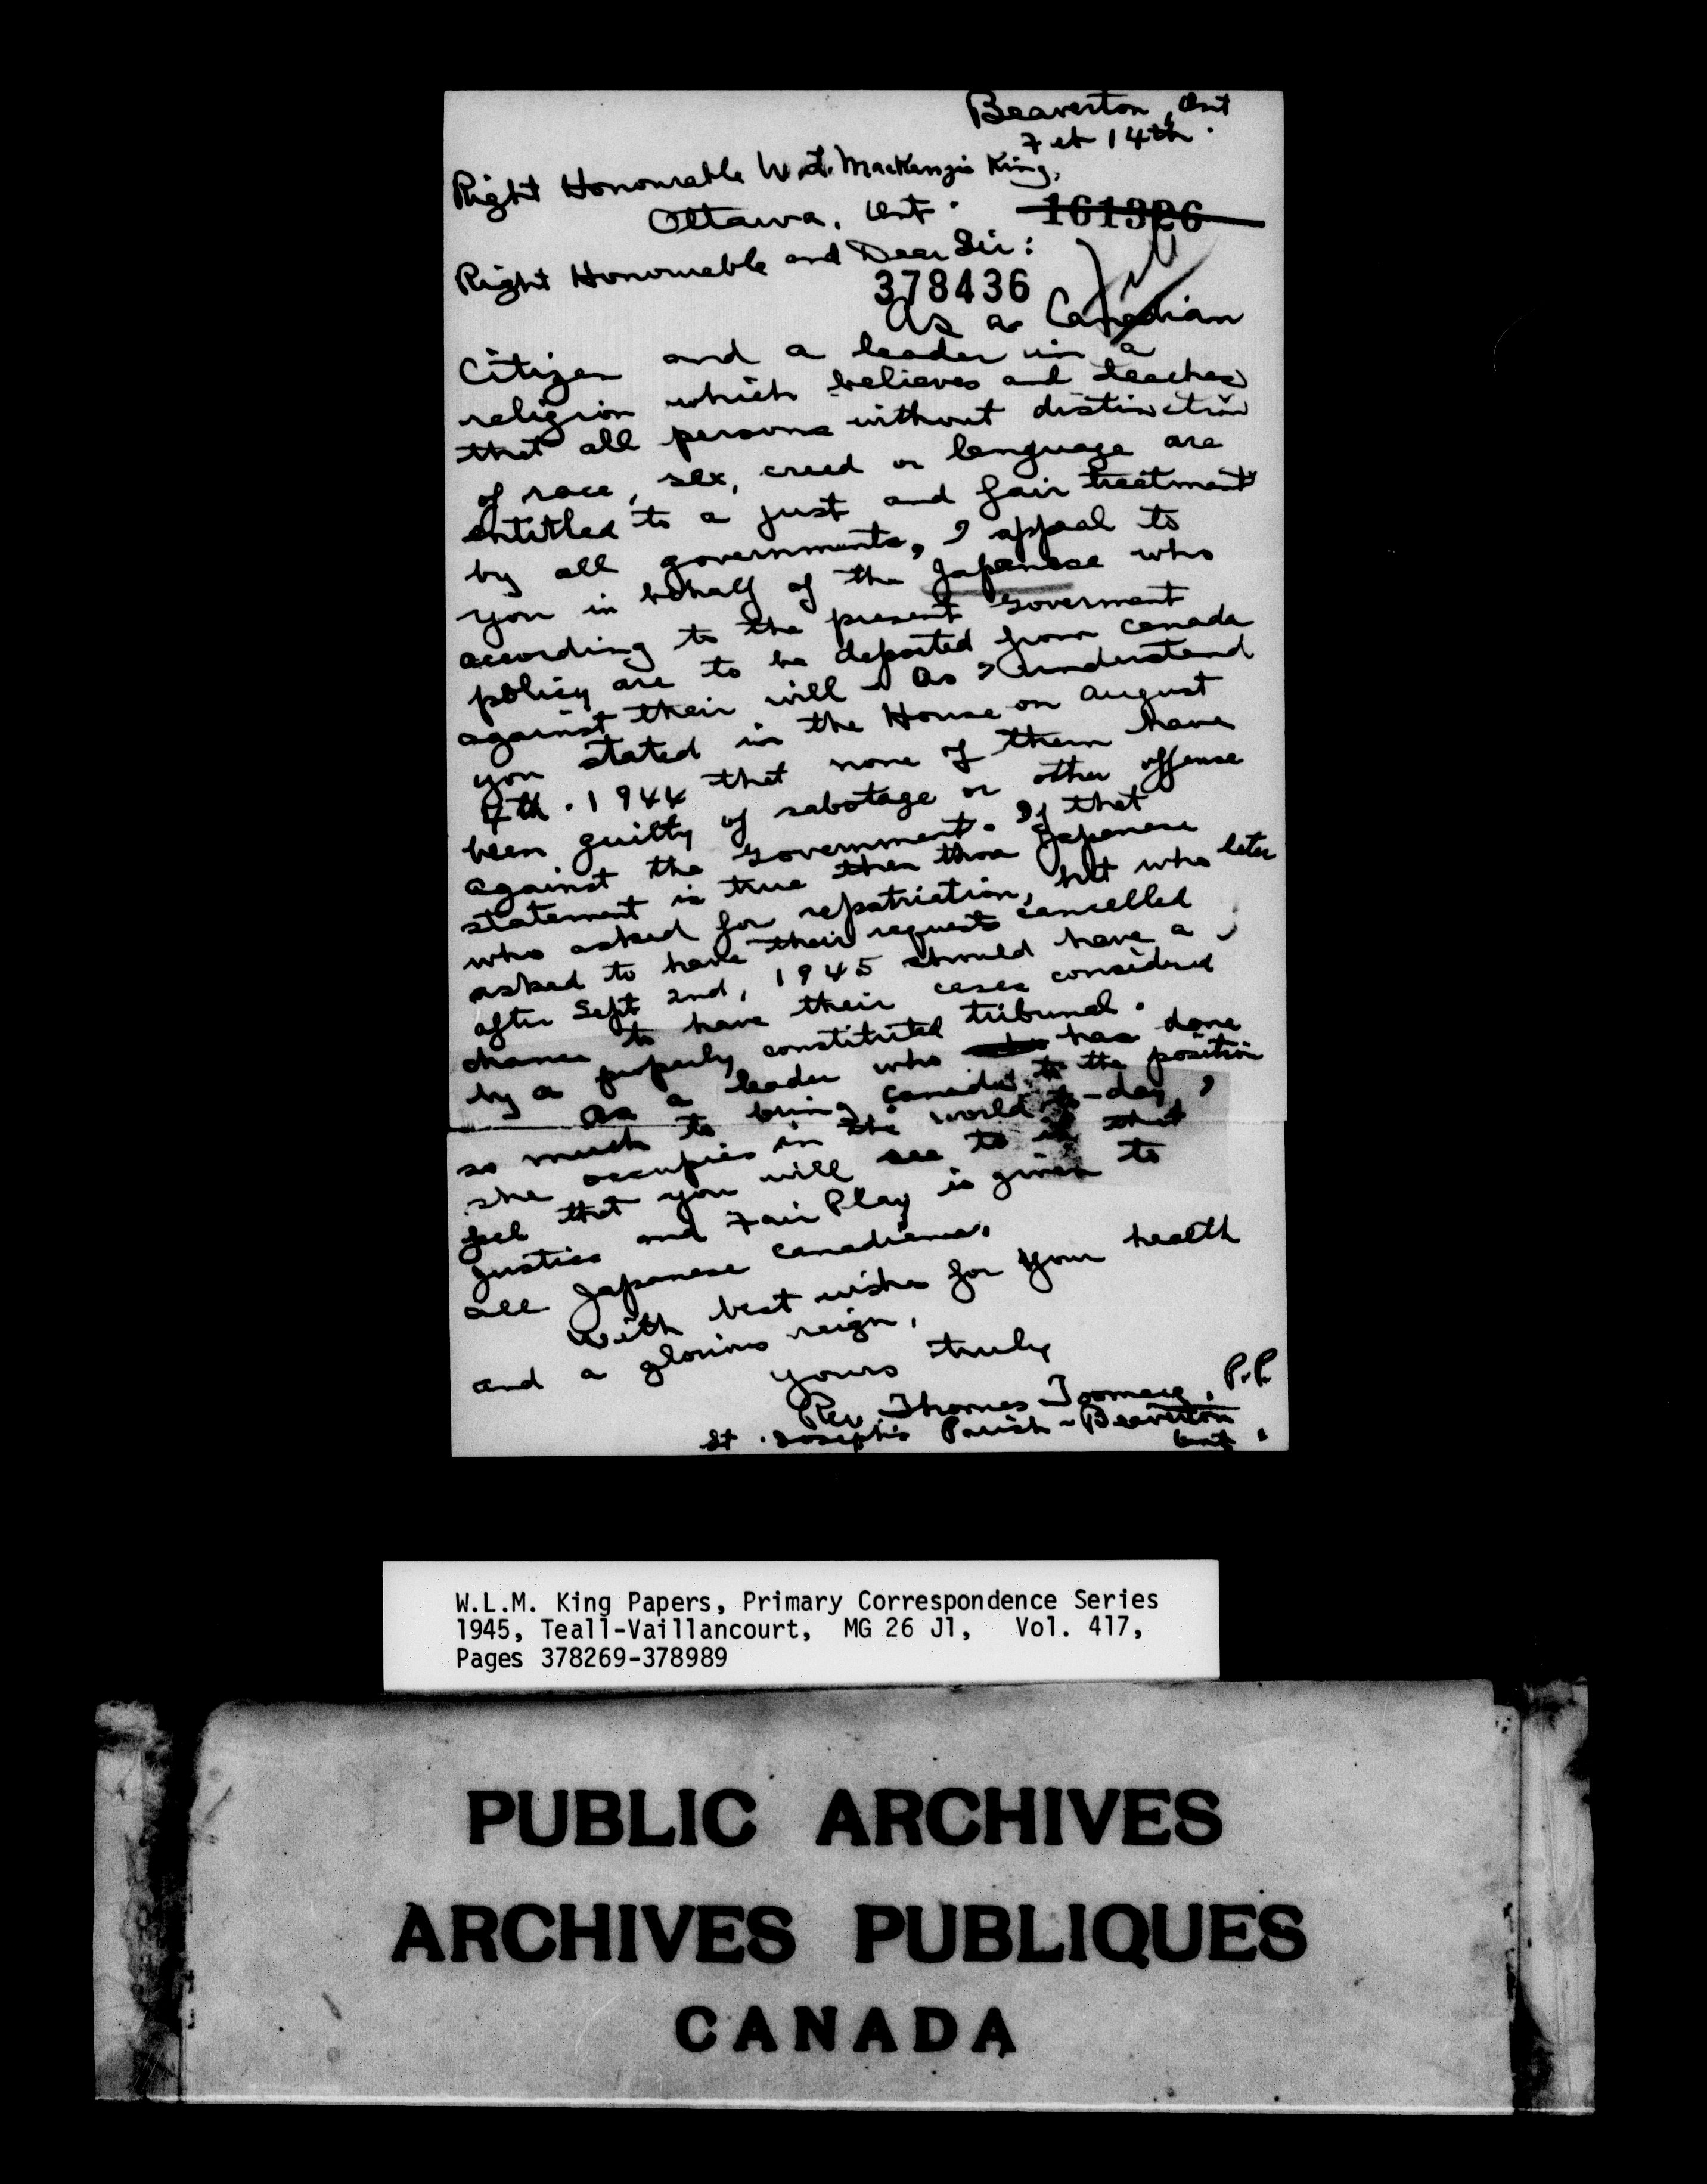 Beaverton, Ont
Feb 14th.
Right Honourable W.L. MacKenzie King,
Ottawa, Ont.
161326
Right Honourable and Dear Sir:
378436
As a Canadian
Citizen and a leader in a
religion which believes and teaches
that all persons without distinction
of race, sex, creed or language are
entitled to a just and fair treatment
by all governments, I appeal to
you in behalf of the Japanese who
according to the present Goverment
policy are to be deported from Canada
against their will. As I understand
you stated in the House on August
4th. 1944 that none of them have
been guilty of sabotage or other offense
against the Government. If that
statement is true then those Japanese
who asked for repatriation, but who later
asked to have their requests cancelled
after Sept 2nd, 1945 should have a
chance to have their cases considered
by a properly constituted tribunal.
As a leader who has done
so much to bring Canada to the position
she occupies in the world to-day, I
feel that you will see to it that
Justice and Fair Play is given to
all Japanese Canadians.
With best wishes for your health
and a glorious reign,
yours truly
Rev. Thomas Toomey, P.P.
St. Joseph's Parish - Beaverton
Ont.
W.L.M. King Papers, Primary Correspondence Series
1945, Teall-Vaillancourt, MG 26 J1, Vol. 417,
Pages 378269-378989
PUBLIC ARCHIVES
ARCHIVES PUBLIQUES
CANADA